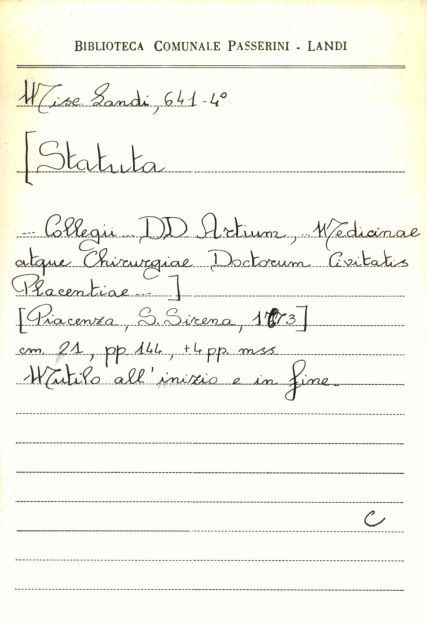 BIBLIOTECA COMUNALE PASSERINI - LANDI
Misc. Landi, 641-4°
[Statuta
... Collegii DD Artium, Medicinae
atque Chirurgiae Doctorum Civitatis
Placentiae ... ]
[Piacenza, S. Sirena, 1773]
cm. 21, pp. 144, +4 pp. mss
Mutilo all'inizio e in fine.
C